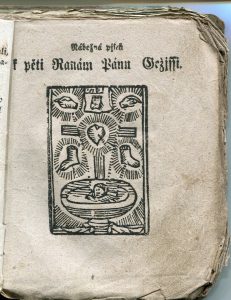 Nábožná pjseň
k pěti Ranám Pánu Gežissi.